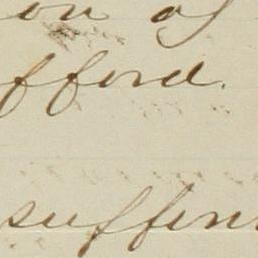 on of
fford.
suffern